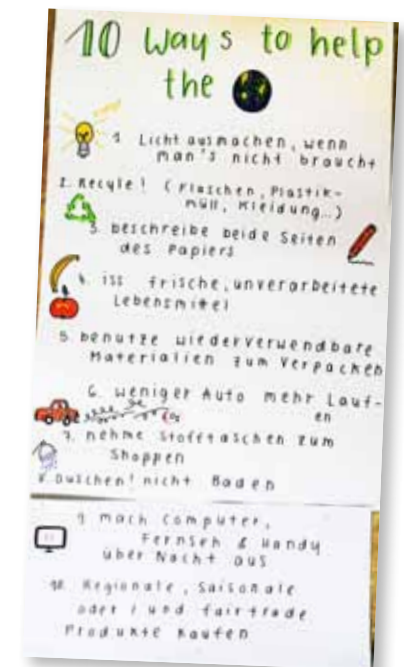 10 Ways to help
the
1 Licht ausmachen, wenn
man's nicht braucht
2. Recyle! (Flaschen, Plastik-
müll, Kleidung...)
3. beschreibe beide Seiten
des Papiers
4. iss frische, unverarbeitete
Lebensmittel
5. benutze wiederverwendbare
Materialien zum Verpacken
6. weniger Auto mehr Lauf-
en
7. nehme Stofftaschen zum
Shoppen
8. Duschen! nicht Baden
9 mach Computer,
Fernseh & Handy
über Nacht aus
10. Regionale, Saisonale
oder / und fairtrade
Produkte kaufen